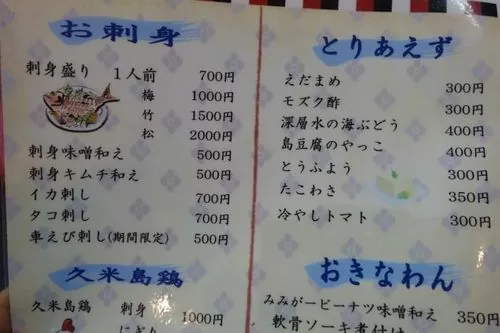 お刺身
刺身盛り 1人前 700円
梅 1000円
竹 1500円
松 2000円
刺身味噌和え 500円
刺身キムチ和え 500円
イカ刺し 700円
タコ刺し 700円
車えび刺し(期間限定) 500円
久米島鶏
久米島鶏 刺身 1000円
にぎり
とりあえず
えだまめ 300円
モズク酢 300円
深層水の海ぶどう 400円
島豆腐のやっこ 400円
とうふよう 300円
たこわさ 350円
冷やしトマト 300円
おきなわん
みみがーピーナツ味噌和え 350円
軟骨ソーキ煮付